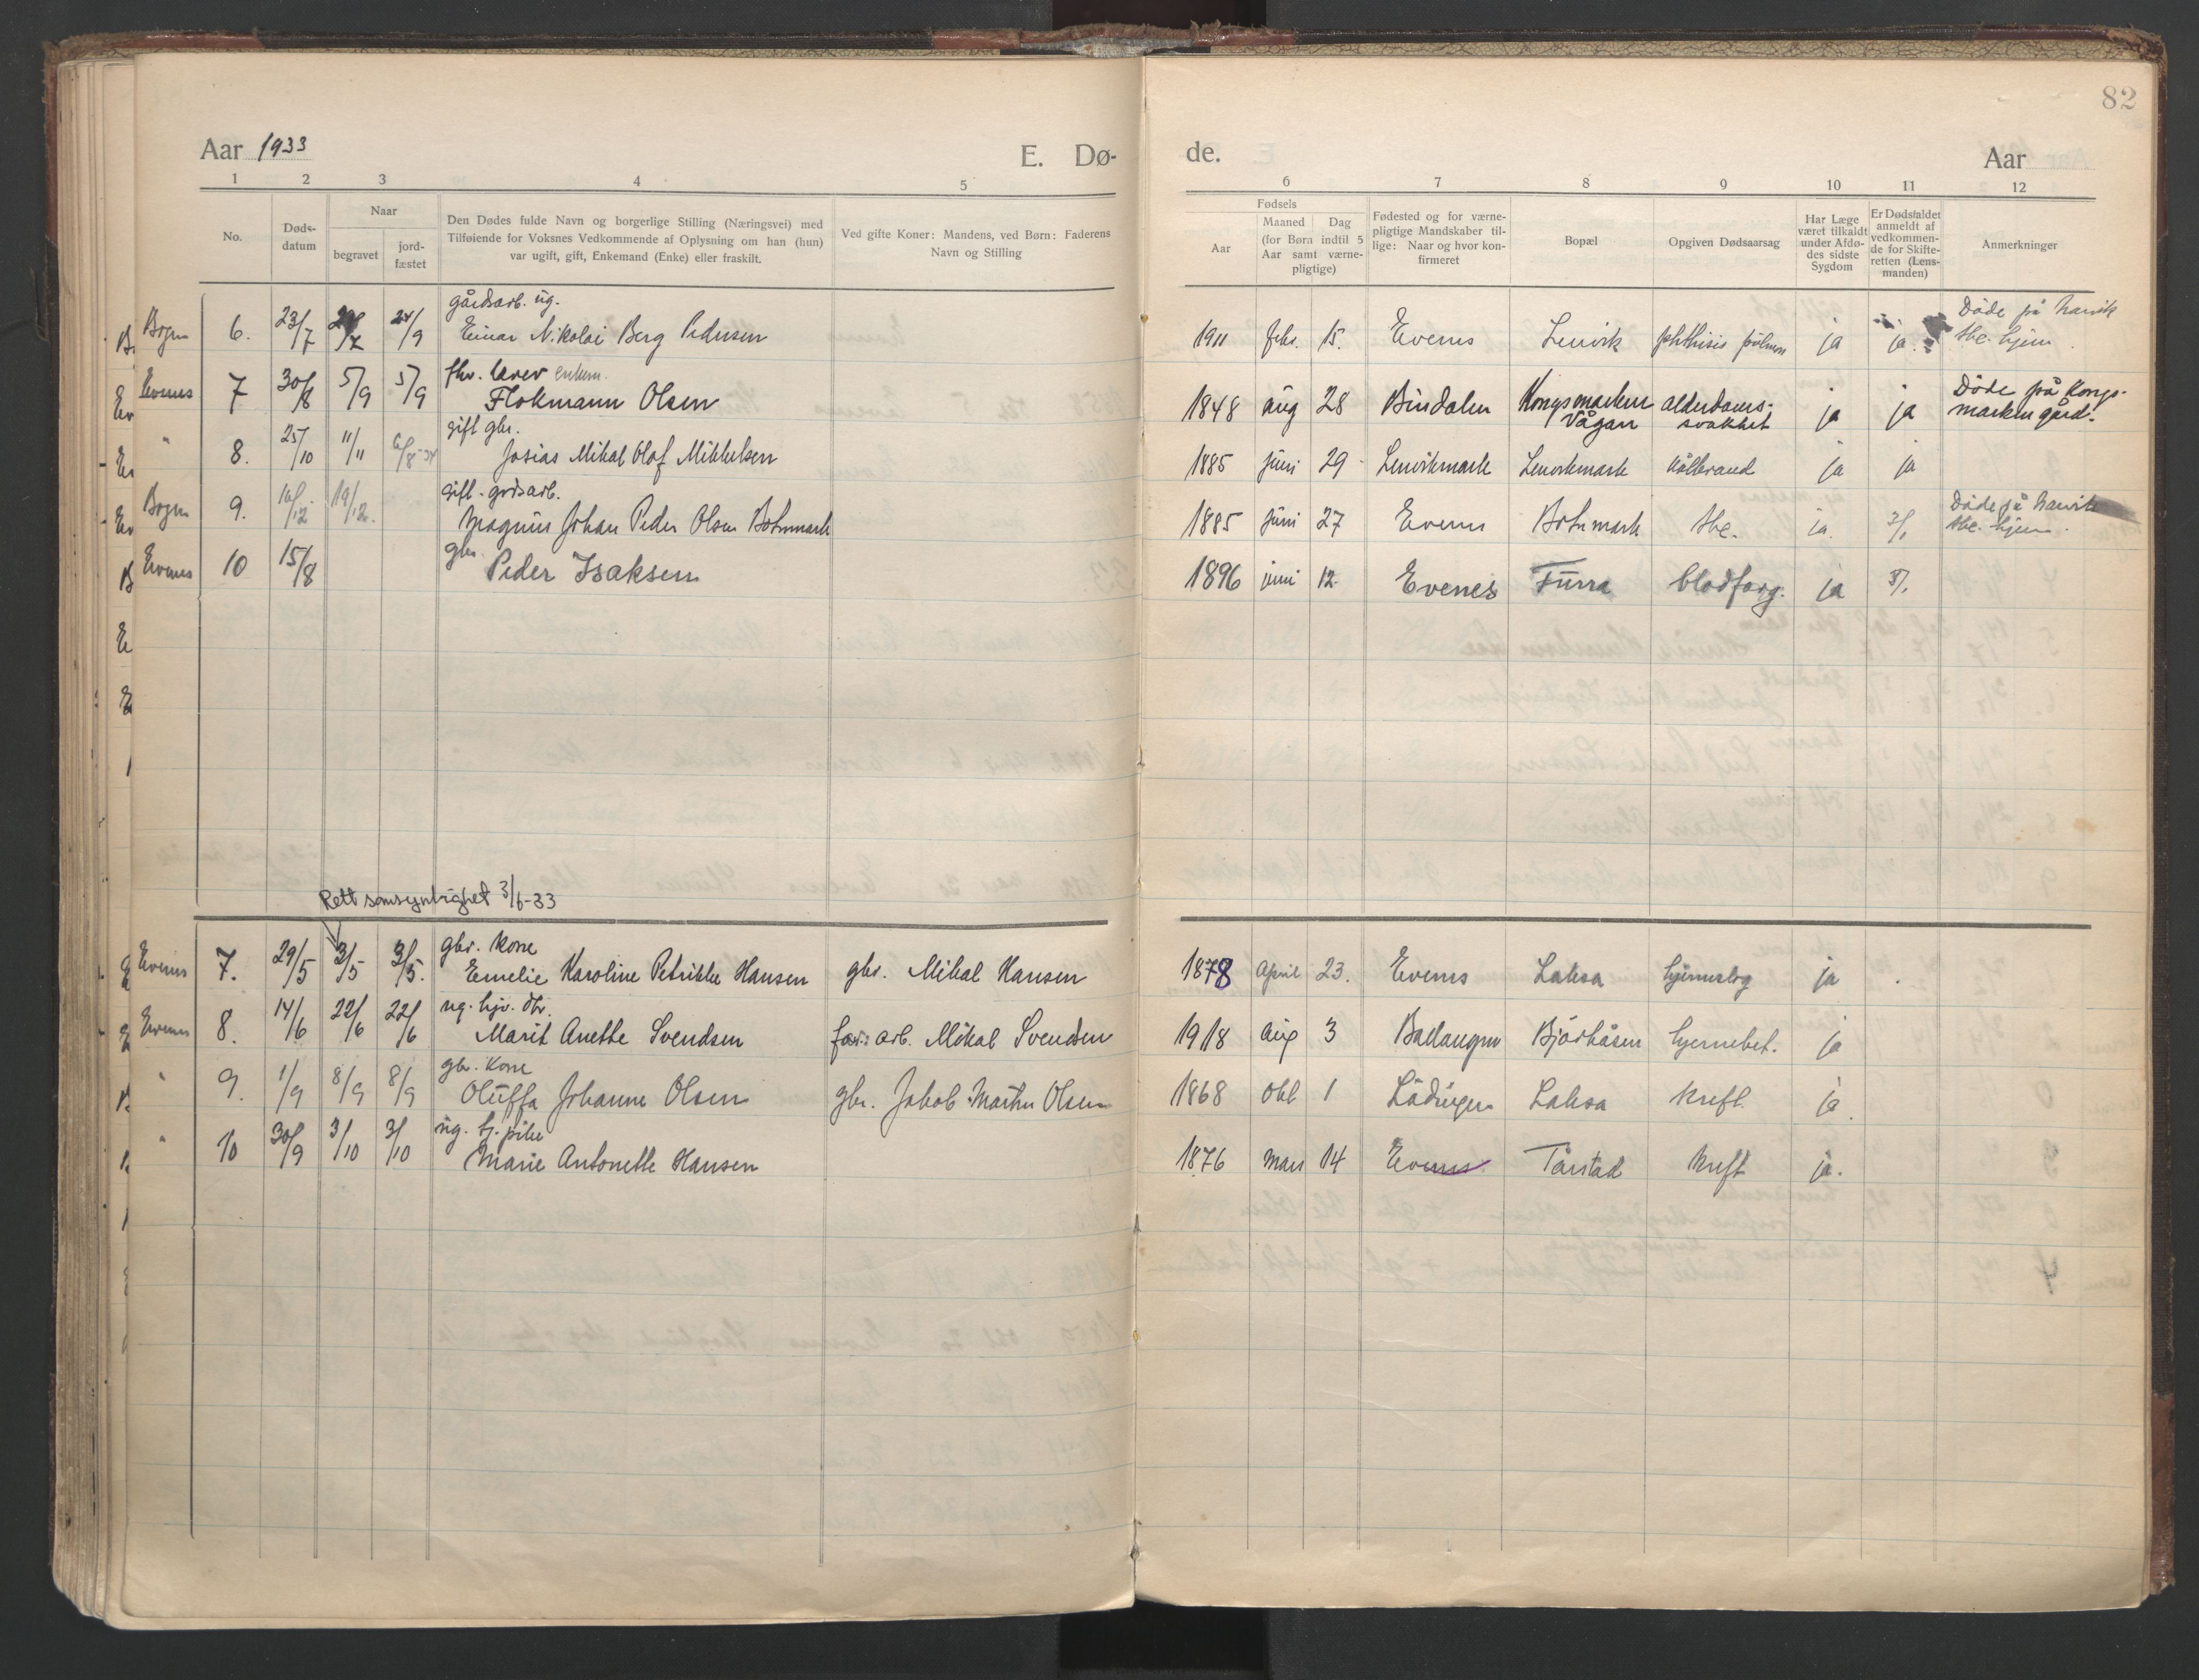 82
Aar 1933 E. Dø-
de. Aar
1 2 3 4 5
6 7 8 9 10 11 12
No.
Døds-
datum
Naar
begravet
jord-
fæstet
Den Dødes fulde Navn og borgerlige Stilling (Næringsvei) med
Tilføiende for Voksnes Vedkommende af Oplysning om han (hun)
var ugift, gift, Enkemand (Enke) eller fraskilt.
Ved gifte Koner: Mandens, ved Børn: Faderens
Navn og Stilling
Fødsels
Aar
Maaned Dag
(for Børn indtil 5
Aar samt værne-
pligtige)
Fødested og for værne-
pligtige Mandskaber til-
lige: Naar og hvor kon-
firmeret
Bopæl
Opgiven Dødsaarsag
Har Læge
været tilkaldt
under Afdø-
des sidste
Sygdom
Er Dødsfaldet
anmeldt af
vedkommen-
de for Skifte-
retten (Lens-
manden)
Anmerkninger
gårdsarb. ug.
Bogen 6. 23/7 24/9 Einar Nikolai Berg Pedersen 1911 febr. 15. Evenes Lenvik phthisis pulmon ja ja. Døde på Narvik
tbc. hjem.
fhv. lærer enkem.
Evenes 7 30/8 5/9 5/9 Flokmann Olsen 1848 aug 28 Bindalen Kongsmarken Vågan alderdoms-
svakhet ja ja Døde på Kongs-
marken gård.
gift gbr.
" 8. 25/10 11/11 6/8-34 Josias Mikal Olaf Mikkelsen 1885 juni 29 Lenvikmark Lenvikmark koldbrand ja ja
gift. grdsarb.
Bogen 9. 16/12 19/12. Magnus Johan Peder Olsen Botnmark 1885 juni 27 Evenes Botnmark tbc. ja. 3/1 Døde på Narvik
tbc. hjem.
gbr.
Evenes 10 15/8 Peder Isaksen 1896 juni 12 Evenes Turra blodforg. ja 3/1.
Rett samsynlighet 3/6-33
gbr. kone
Evenes 7. 29/5 3/5 3/5. Emelie Karoline Petrikke Hansen gbr. Mikal Hansen 1878 April 23. Evenes Laksa hjerneslag ja
ug. hjv. dtr.
Evenes 8. 14/6 22/6 22/6 Marit Anette Svendsen far: arb. Mikal Svendsen 1918 aug 3 Ballangen Bjørkåsen hjernebet. ja
gbr. kone
" 9. 1/9 8/9 8/9 Oluffa Johanne Olsen gbr. Jakob Martin Olsen 1868 okt 1 Lødingen Laksa kreft. ja.
ug. tj. pike
" 10 30/9 3/10 3/10 Marie Antonette Hansen 1876 mars 14 Evenes Tårstad kreft ja.